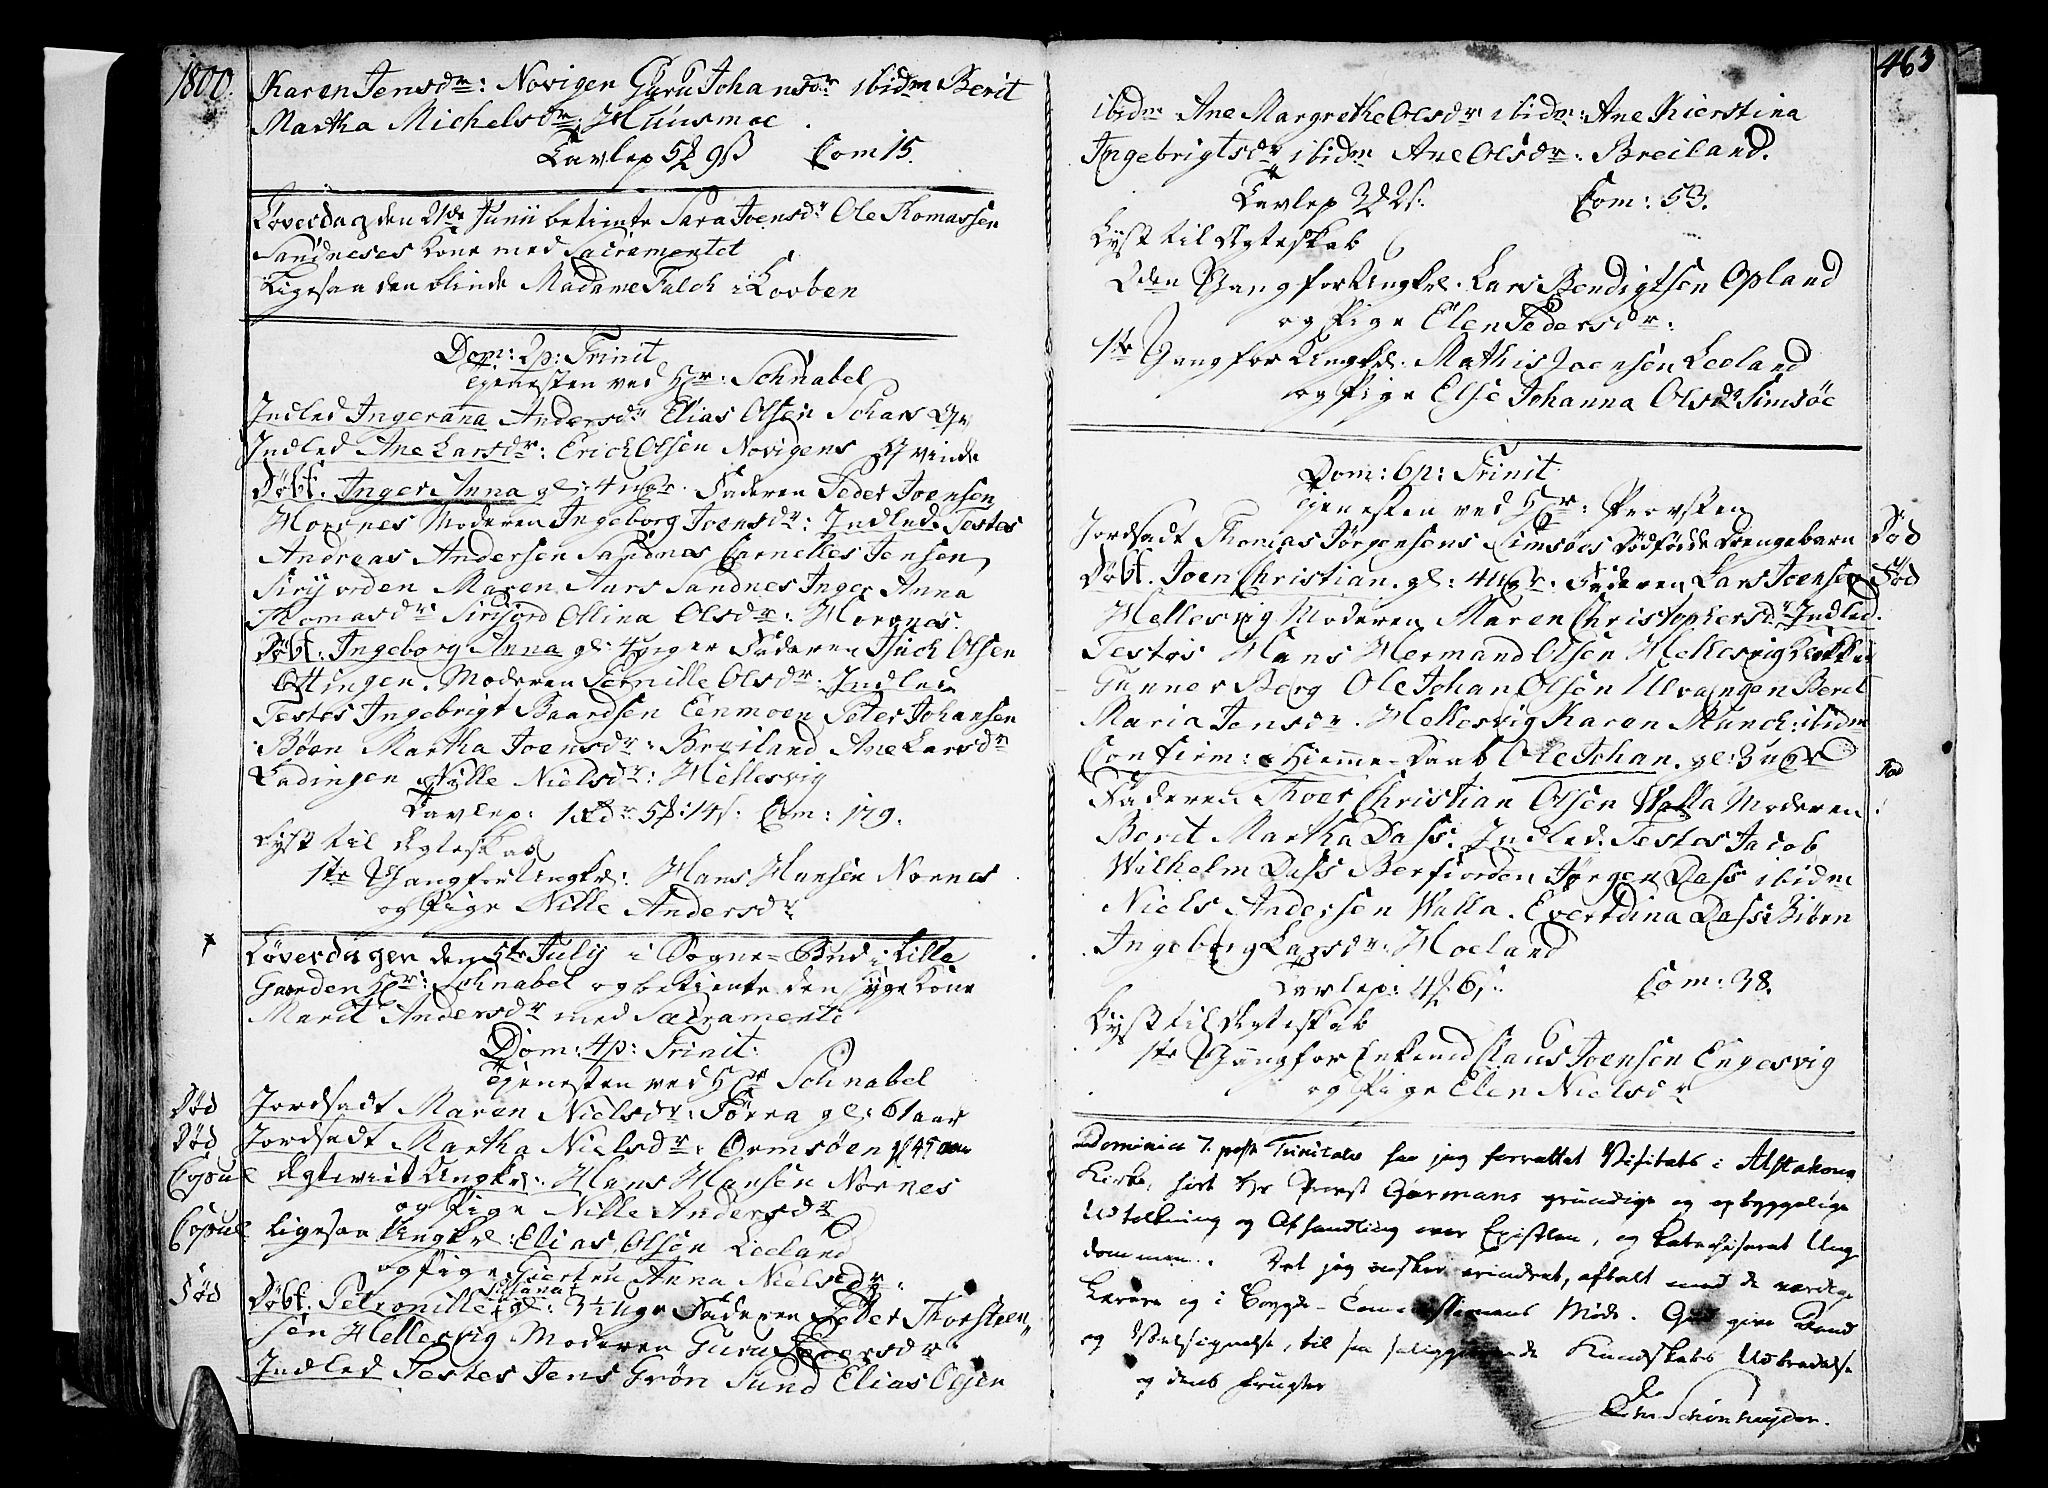 1800.
Karen Jensdr: Novigen Guru Johansdr ibidm Berit
Martha Michelsdr: Huusmoe
Tavlep 5 ₰ 9 ß Com 15.
Løverdag den 21de Junii betiente Sara Joensdr Ole Thomassen
Sandneses Kone med Sacramentet
Ligesaa den blinde Madame Falch i Lovben
Dom: 2p: Trinit
Tjenesten ved Hr: Schnabel
Indled Ingeranna Andersdr Elias Olsen Schars Qv
Indled Ane Larsdr: Erich Olsen Novigens Qvinde
Døbt. Inger Anna gl: 4 uger. Faderen Peder Joensen
Hornes Moderen Ingeborg Joensdr: Indled. Testes
Andreas Andersen Sandnes Cornelles Jensen
Sirijorden Maren Aars Sandnes Inger Anna
Thomasdr Sirifjord Ollina Olsdr: Hornes.
Døbt. Ingeborg Anna gl: 4 uger Faderen Isach Olsen
Ottingen. Moderen Pernille Olsdr. Indled
Testes Ingebrigt Baardsen Eenmoen Peter Johansen
Bøen Martha Joensdr: Breiland Ane Larsdr
Ladingen Nille Nielsdr: Hellesvig
Tavlep: 1 Rdr 5 ₰: 14 s: Com: 179.
Lyst til Ægteskab
1te Gang for Ungkl: Hans Hansen Nornes
og Pige Nille Andersdr
Løverdagen den 5te July i Sogne-Bud i Lille
Gaarden Hr: Schnabel og betiente den syge Kone
Marit Andersdr med Sacramente
Dom: 4p: Trinit:
Tjenesten ved Hr Schnabel
Død Jordsadt Maren Nielsdr: Førra gl: 61 aar
Død Jordsadt Martha Nielsdr: Ormsøen gl 45 aar
Copul Ægteviet Ungkl: Hans Hansen Nornes
og Pige Nille Andersdr
Copul Ligesaa Ungkl: Elias Olsen Leeland
og Pige Giertru Anna Nielsdr:
Fød Døbt. Petronille Silvana gl: 3½ Uge Faderen Peder Thorsteen„
sen Hellesvig Moderen Guru Peedersdr
Indled Testes Jens Grøn Sund Elias Olsen
463
ibidm Ane Margrethe Olsdr ibidm: Ane Kierstina
Ingebrigtsdr ibidm Ane Olsdr: Breiland.
Tavlep 3 ₰ 2 s: Com: 53.
Lyst til Ægteskab
2den Gang for Ungkl. Lars Bendigtsen Opland
og Pige Elen Pedersdr:
1te Gang for Ungkl. Mathis Joensen Leeland
og Pige Else Johanna Olsdr Simsøe
Dom: 6p: Trinit
Tjenesten ved Hr: Provsten
Jordsadt Thomas Jørgensens Simsøes dødfødde Drengebarn Død
Døbt. Joen Christian. gl: 4 uger. Faderen Lars Joensen Fød
Hellesvig Moderen Maren Christophersdr Indled.
Testes Hans Hermand Olsen Hellesvig
Gunner Berg Ole Johan Olsen Ulvangen Berit
Maria Jensdr. Hellesvig Karen Munch: ibidm
Confirm: Hiemme-Daab Ole Johan. gl: 3 uger Fød
Faderen Thoer Christian Olsen Walla Moderen
Berit Martha Dass. Indled. Testes Jacob
Wilhelm Dass Berfiorden Jørgen Dass ibidm
Niels Andersen Walla. Evertdina Dass: Biørn
Ingeborg Larsdr. Hoeland
Tavlep: 4 ₰ 6 s: Com: 38.
Lyst til Ægteskab
1te Gang for Enkemd Claus Joensen Engesvig
og Pige Elen Nielsdr
Dominica 7. post Trinitatis har jeg forrettet Visitats i Alstahoug
Kirke, hørt Hr Provst Gørmans grundige og opbyggelige
Udtolkning og Afhandling over Epistlen, og katechiseret Ung
dommen. Det jeg ønsker erindret, aftalt med de værdige
Lærere og i Bøygde-Commissionens Møde. Gud give Lande
og Velsignelse, til saa saliggiørende Kundskabs Udbredelse
og dens Frugter
Chr Schønheyder.